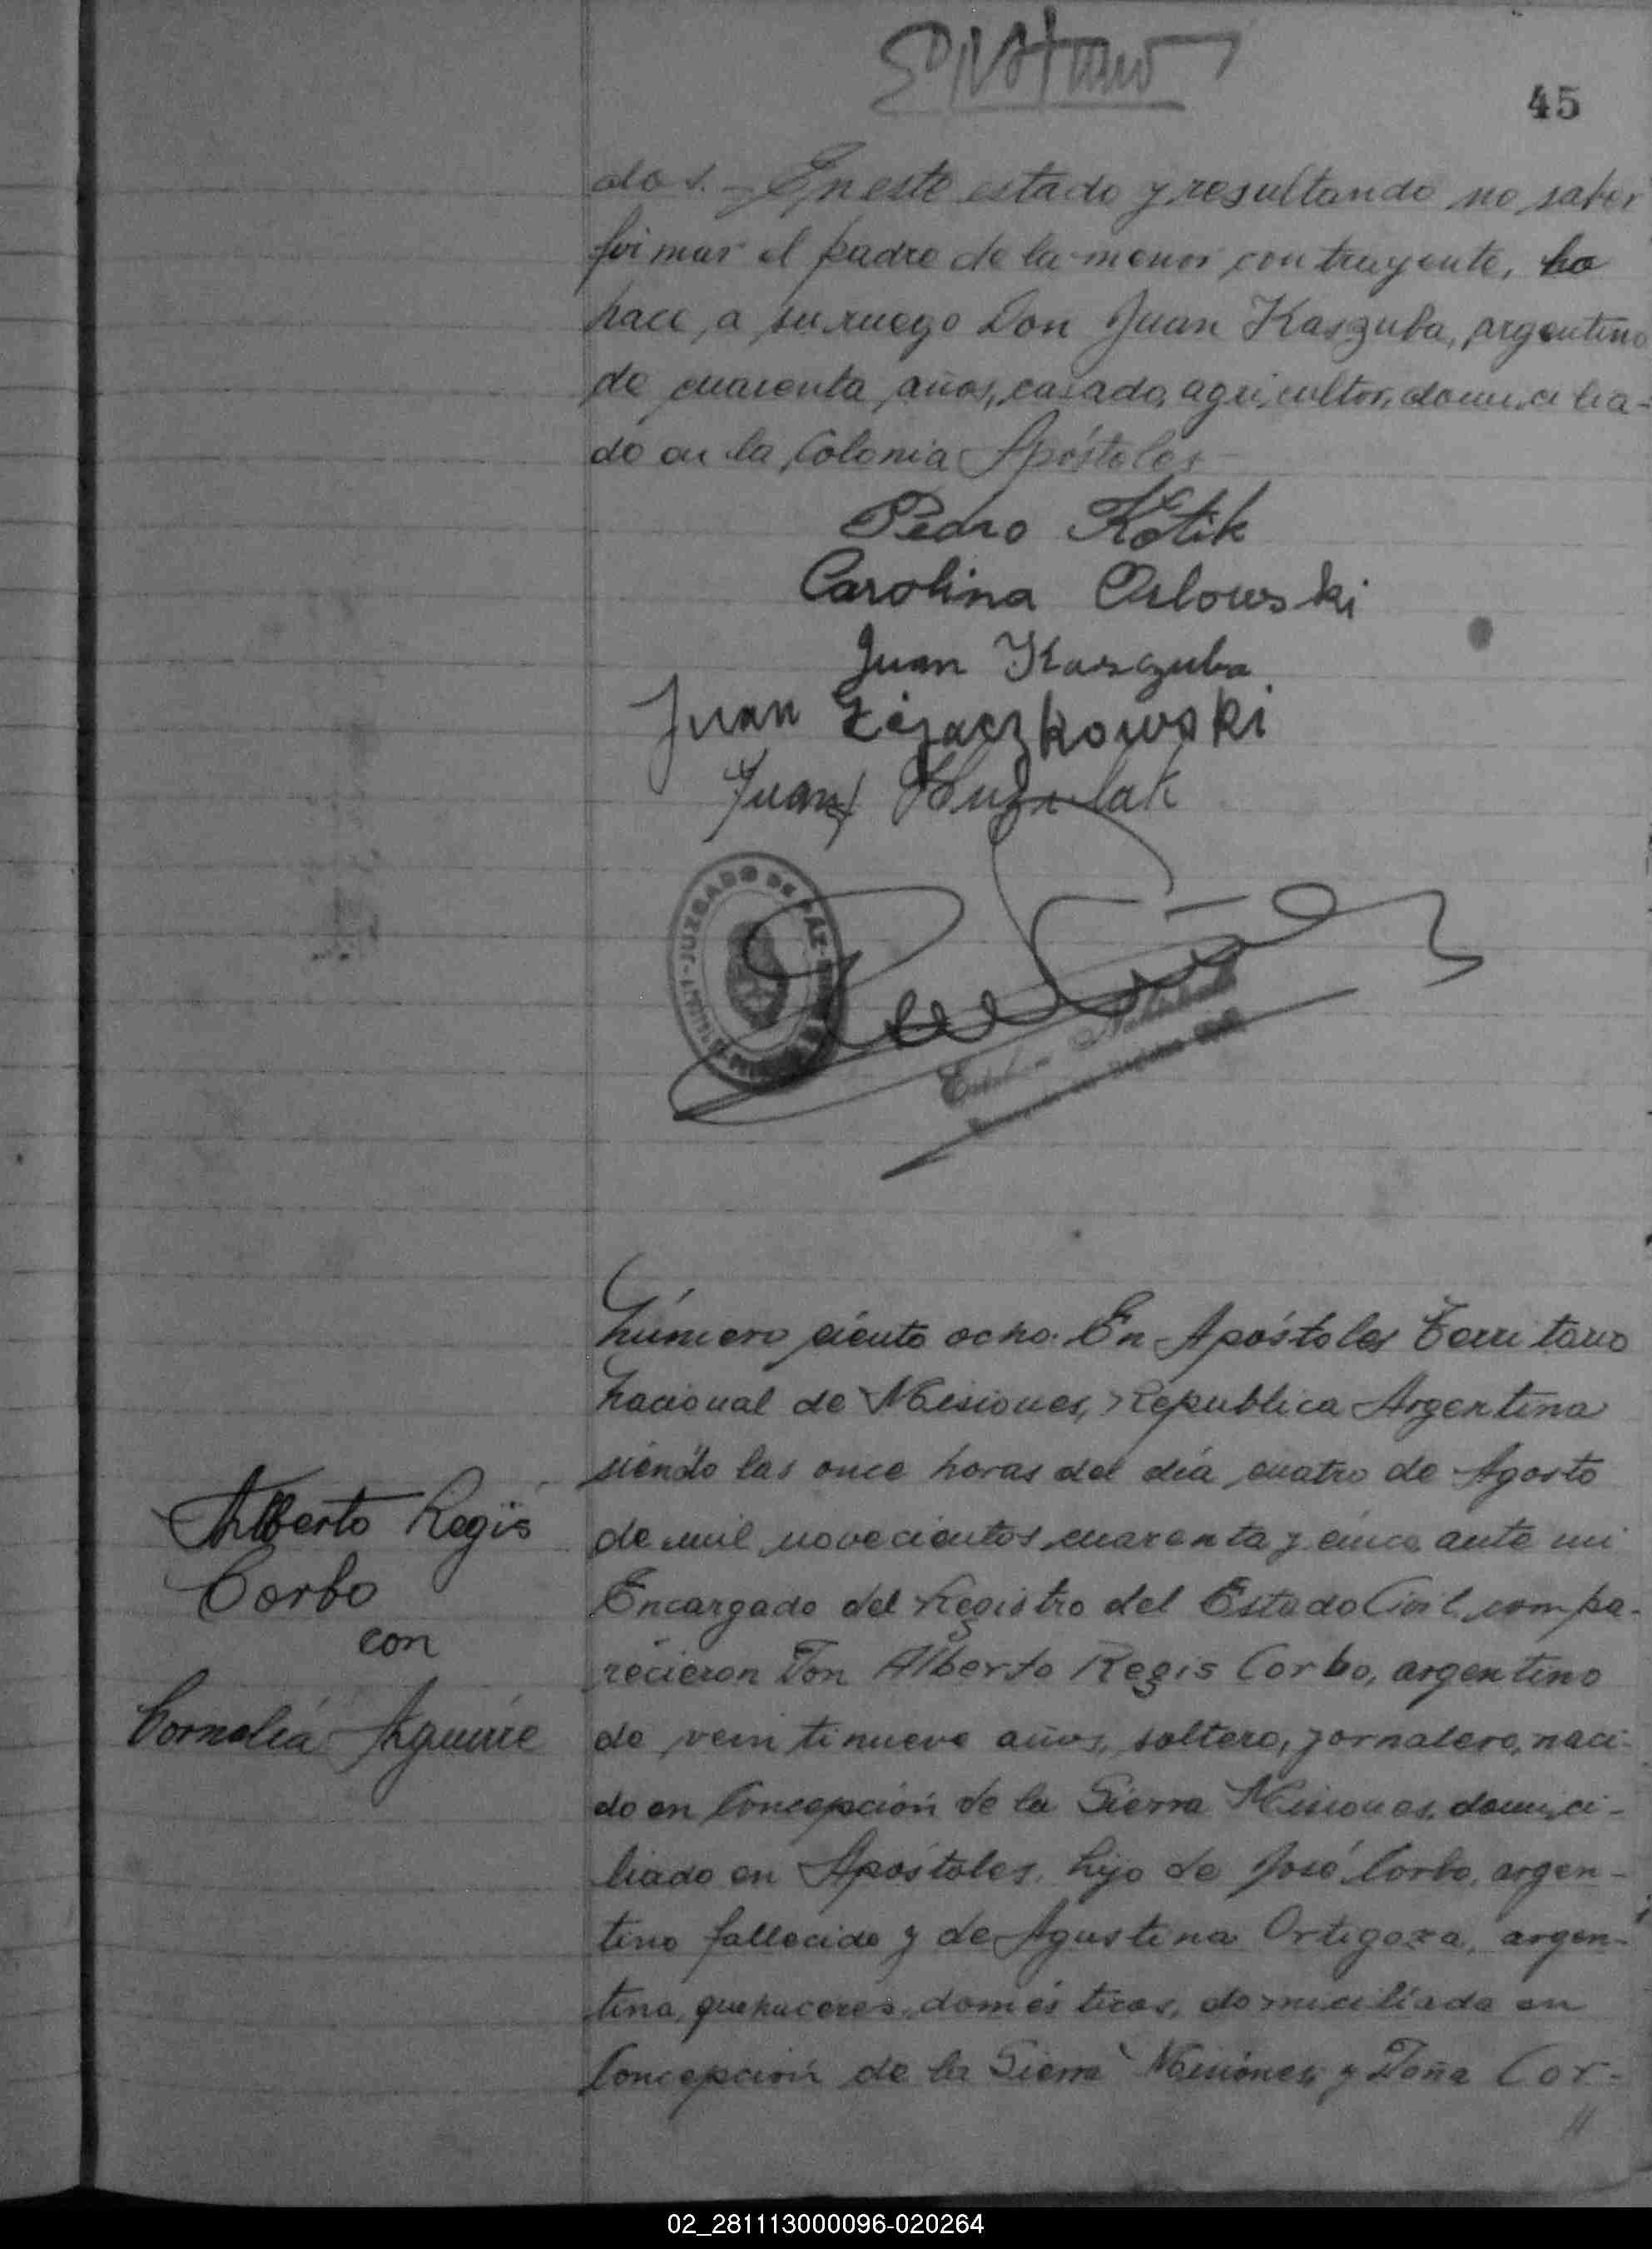 45
dos.- En este estado y resultando no saber
firmar el padre de la menor contrayente, lo
hace a su ruego Don Juan Kaszuba, argentino
de cuarenta años, casado, agricultor, domicilia-
do en la Colonia Apóstoles
Pedro Kotik
Carolina Orlowski
Juan Kaszuba
Juan
Juan
JUZGADO DE PAZ
Número ciento ocho. En Apóstoles Territorio
Nacional de Misiones, Republica Argentina
siendo las once horas del día cuatro de Agosto
de mil novecientos cuarenta y cinco ante mi
Encargado del Registro del Estado Civil compa-
Alberto Regis
Corbo
con
Cornelia Aguirre
recieron Don Alberto Regis Corbo, argentino
de veintinueve años, soltero, jornalero, naci-
do en Concepción de la Sierra Misiones, domici-
liado en Apóstoles, hijo de José Corbo, argen-
tino fallecido y de Agustina Ortigoza, argen-
tina, quehaceres domésticos, domiciliada en
Concepción de la Sierra Misiones, y Doña Cor-
//
02_281113000096-020264